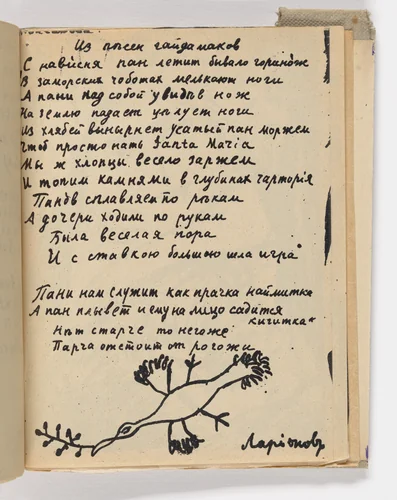 Из пѣсен гайдамаков
С нависня пан летит бывало горинож
В заморских чоботах мелькают ноги
А пани под собой увидѣв нож
На землю падает цѣлует ноги
Из хлябей вынырнет усатый пан моржем
Чтоб простонать Santa Maria
Мы ж хлопцы весело заржем
И топим камнями в глубинах чарторія
Панов сплавляет по рѣкам
А дочери ходили по рукам
Была веселая пора
И с ставкою большою шла игра
Пани нам служит как прачка наймитка
А пан плывет и ему на лицо садится
кигитка
Нѣт старче то негоже
Парча отстоит от рогожи
Ларіонов